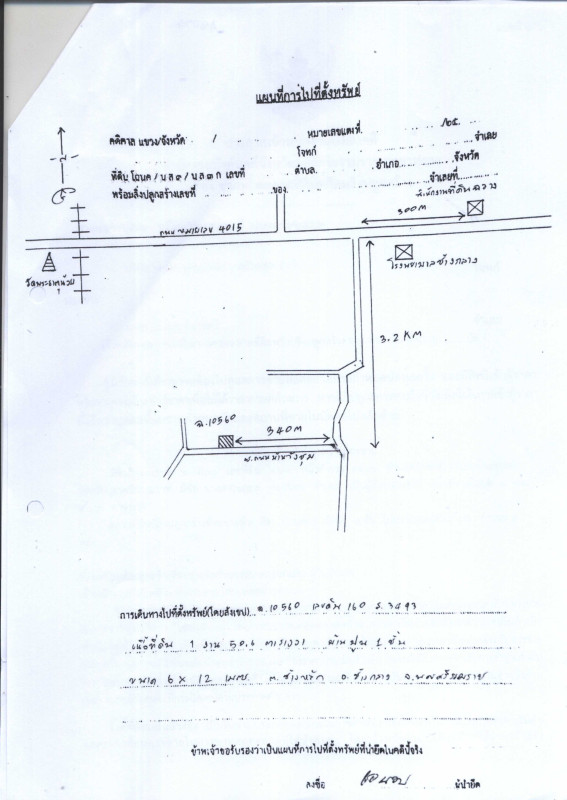 แผนที่การไปที่ตั้งทรัพย์
คดีศาล แขวง/จังหวัด / หมายเลขแดงที่ /๒๕
โจทก์ จำเลย
ที่ดิน โฉนด / น.ส.๓ / น.ส.๓ ก เลขที่ ตำบล อำเภอ จังหวัด
พร้อมสิ่งปลูกสร้างเลขที่ ของ จำเลยที่
300 M
ถนนหมายเลข 4015
วัดพระธาตุน้อย
โรงพยาบาลช้างกลาง
3.2 KM
ฉ.10560
340 M
การเดินทางไปที่ตั้งทรัพย์(โดยสังเขป) ฉ.10560 เลขดิน 160 ร.3493
เนื้อที่ดิน 1 งาน 50.6 ตารางวา บ้านปูน 1 ชั้น
ขนาด 6 x 12 เมตร ต.ช้างกลาง อ.ช้างกลาง จ.นครศรีธรรมราช
ข้าพเจ้าขอรับรองว่าเป็นแผนที่การไปที่ตั้งทรัพย์ที่นำยึดในคดีนี้จริง
ลงชื่อ ผู้นำยึด